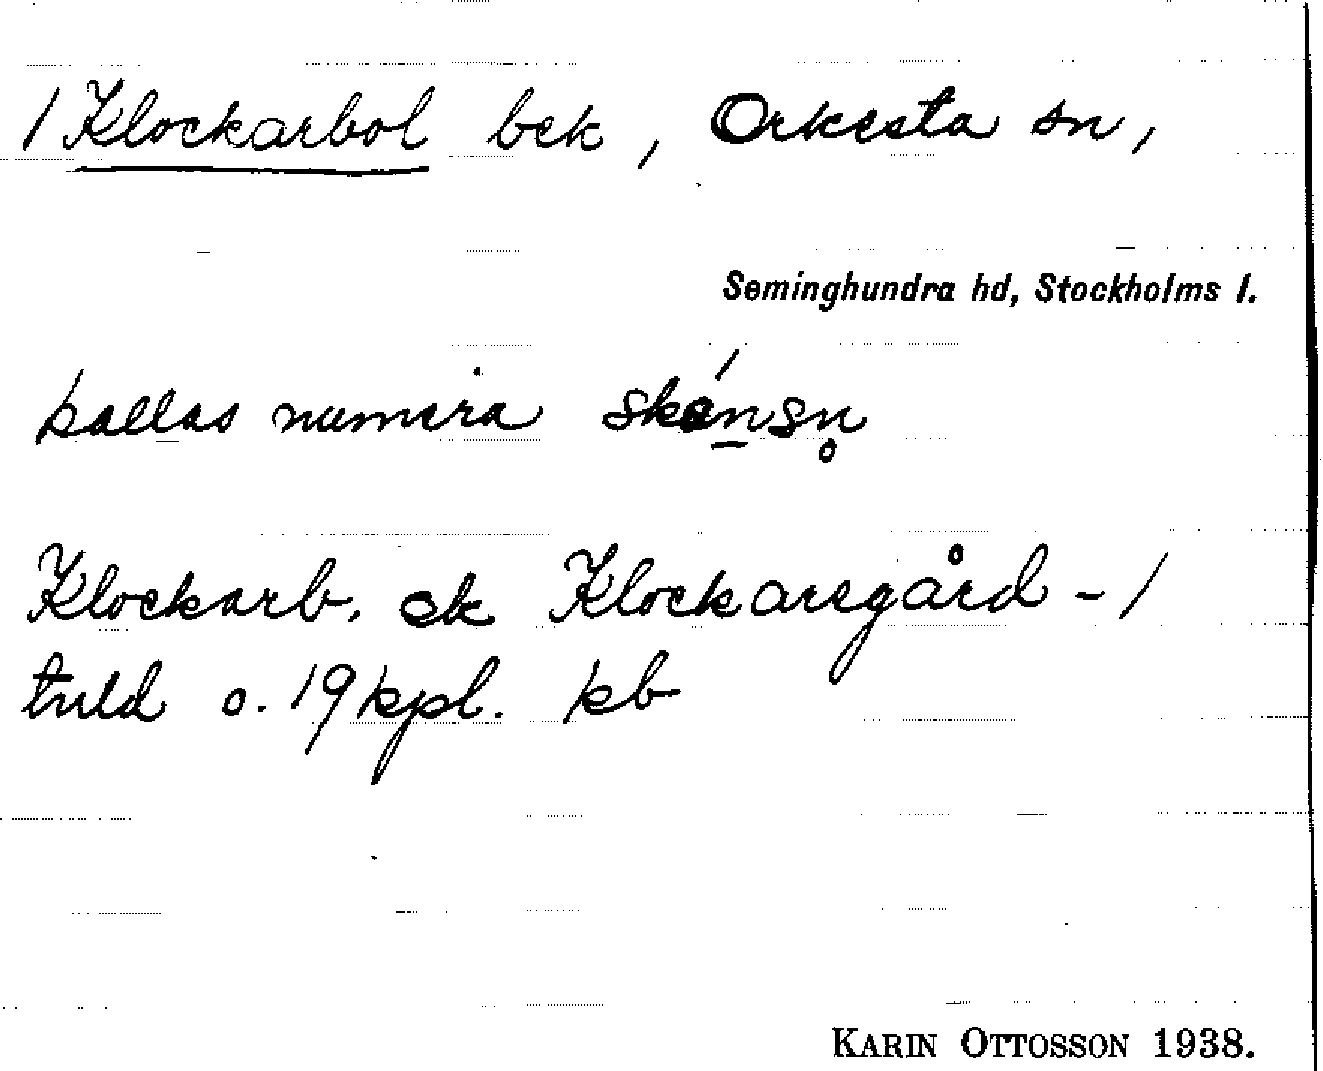 / Klockarbol bek, Orkesta sn,
Seminghundra hd, Stockholms l.
kallas numera
Klockarb. ek Klockaregård - /
tnld o. 19 kpl. kb
KARIN OTTOSSON 1938.